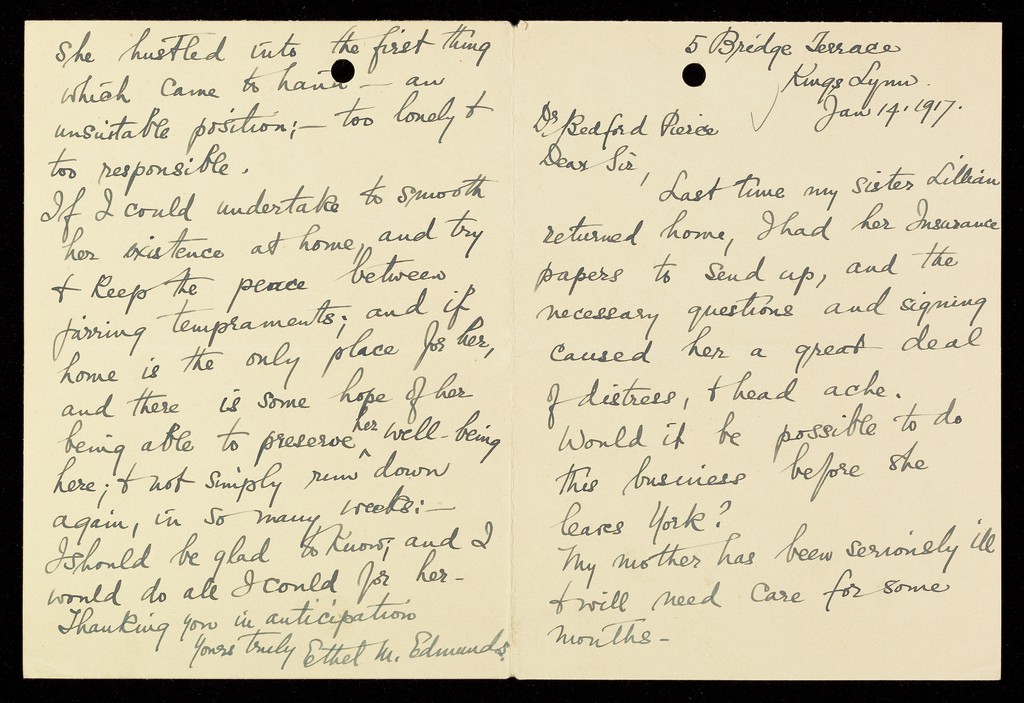 5 Bridge Terrace
Kings Lynn.
Jan 14. 1917.
Dr Bedford Pierce
Dear Sir,
Last time my sister Lillian
returned home, I had her Insurance
papers to send up, and the
necessary questions and signing
caused her a great deal
of distress, & head ache.
Would it be possible to do
this business before she
leaves York?
My mother has been seriously ill
& will need care for some
months -
She hustled into the first thing
which came to hand - an
unsuitable position; - too lonely &
too responsible.
If I could undertake to smooth
her existence at home, and try
& keep the peace between
jarring tempraments; and if
home is the only place for her,
and there is some hope of her
being able to preserve her well-being
here; & not simply run down
again, in so many weeks: -
I should be glad to know; and I
would do all I could for her -
Thanking you in anticipation
Yours truly Ethel M. Edmunds.